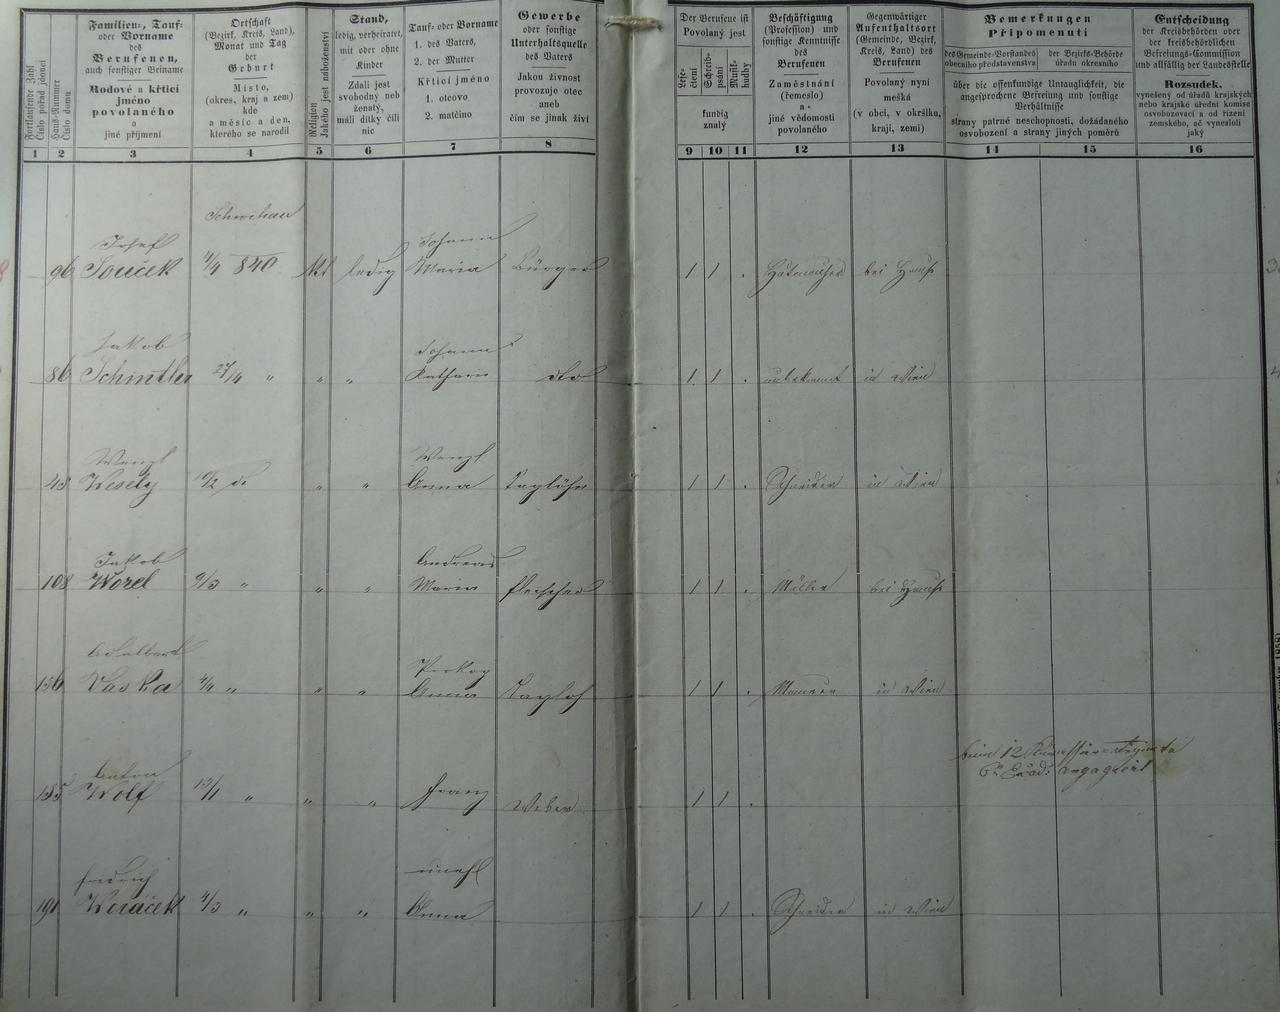 Fortlaufende Zahl
Číslo pořad jdoucí
Haus-Nummer
Číslo domu
Familien-, Tauf-
oder Vorname
des
Berufenen,
auch sonstiger Beiname
Rodové a křticí
jméno
povolaného
a
jiné příjmení
Ortschaft
(Bezirk, Kreis, Land),
Monat und Tag
der
Geburt
Místo,
(okres, kraj a zem)
kde
a měsíc a den,
kterého se narodil
Religion
Jakého jest náboženství
Stand,
ledig, verheiratet,
mit oder ohne
Kinder
Zdali jest
svobodný neb
ženatý,
máli dítky čili
nic
Tauf- oder Vorname
1. des Vaters,
2. der Mutter
Křticí jméno
1. otcovo
2. matčino
Gewerbe
oder sonstige
Unterhaltsquelle
des Vaters
Jakou živnost
provozuje otec
aneb
čím se jinak živí
Der Berufene ist
Povolaný jest
Lese-
čtení
Schreib-
psání
Musik-
hudby
kundig
znalý
Beschäftigung
(Profession) und
sonstige Kenntnisse
des
Berufenen
Zaměstnání
(řemeslo)
a
jiné vědomosti
povolaného
Gegenwärtiger
Aufenthaltsort
(Gemeinde, Bezirk,
Kreis, Land) des
Berufenen
Povolaný nyní
mešká
(v obci, v okršku,
kraji, zemi)
Bemerkungen
Připomenutí
des Gemeinde-Vorstandes
obecního představenstva
der Bezirks-Behörde
úřadu okresního
über die offenkundige Untauglichkeit, die
angesprochene Befreiung und sonstige
Verhältnisse
strany patrné neschopnosti, dožádaného
osvobození a strany jiných poměrů
Entscheidung
der Kreisbehörden oder
der kreisbehördlichen
Befreiungs-Commission
und allfällig der Landesstelle
Rozsudek,
vynešený od úřadů krajských
nebo krajské úřední komise
osvobozovací a od řízení
zemského, ač vynesloli
jaký
1 2 3 4 5 6 7 8 9 10 11 12 13 14 15 16
Schwihau
Josef Johann
96 Souček 840 ledig Maria Bürger 1 1 . bei Hause
Jakob Johann
86 Schintler 27/4 " " " Katharin dto 1 1 . unbekannt in Wien
Wenzl Wenzl
45 Wesely " " Anna Taglöhn 1 1 . Schneider in Wien
Jakob Andreas
108 Worel 9/3 " " " Maria Fleischer 1 1 . Müller bei Hause
Adalbert Prokop
156 Vaska 4/4 " " " Anna Tagloh 1 1 . Maurer in Wien
beim 12
Anton engagiert
185 Wolf 13/1 " " " Franz Weber 1 1 .
Fridrich unehl
191 Woráček 4/3 " " " Anna 1 1 . Schneider in Wien